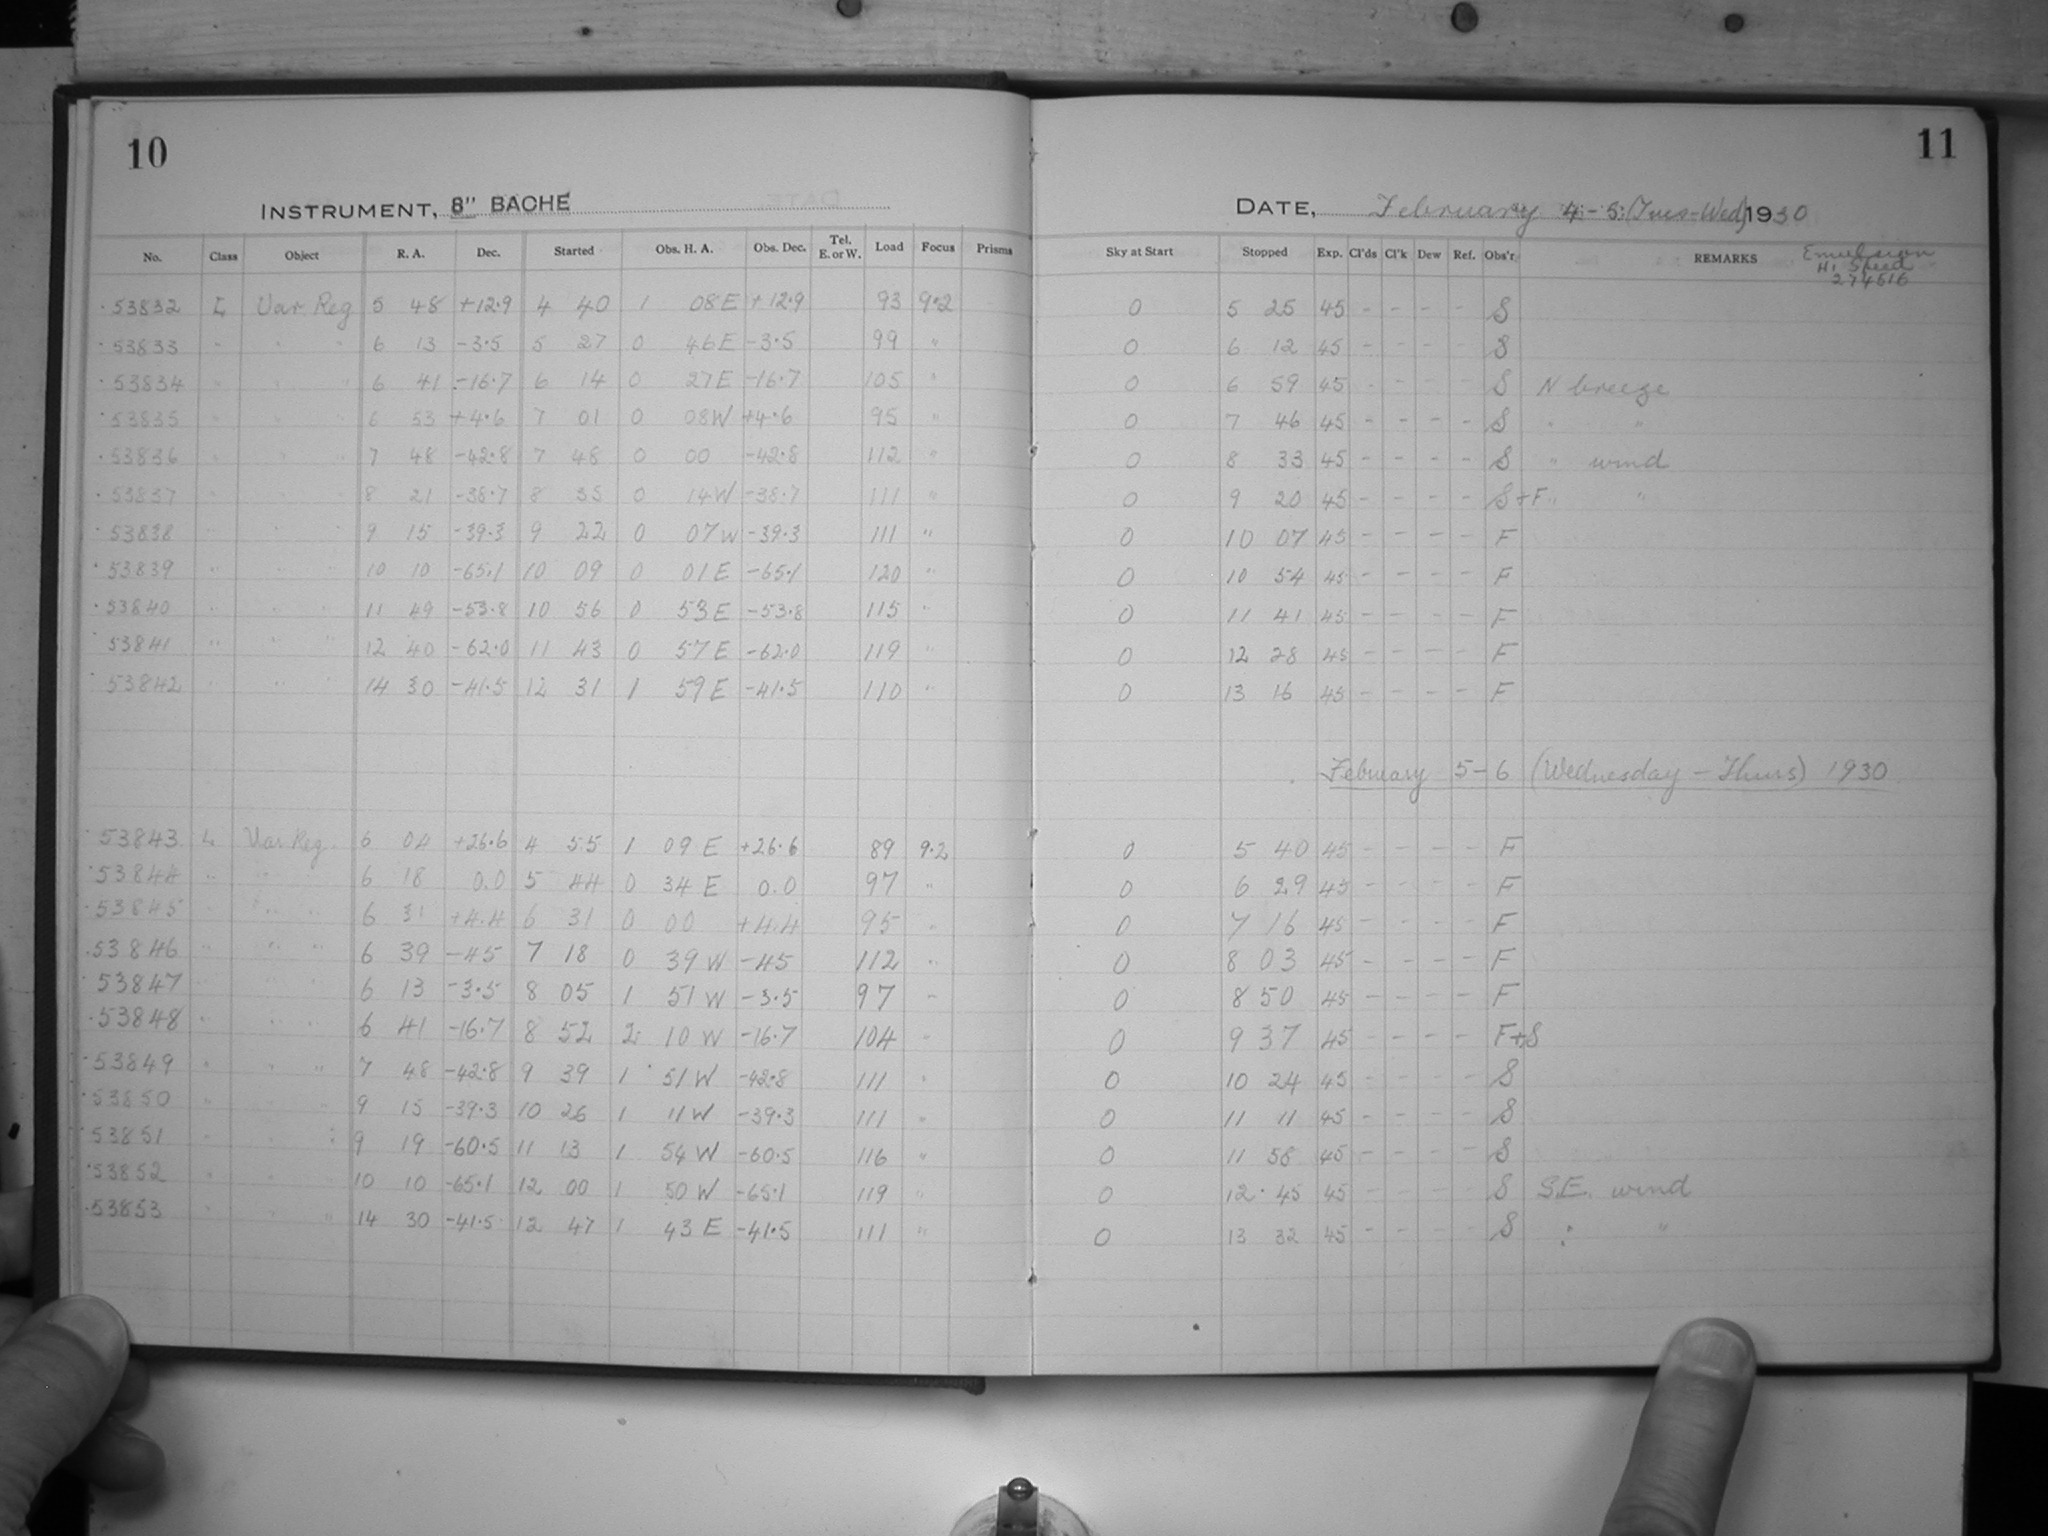 10
11
INSTRUMENT, 8" BACHE
DATE, February 4-5 (Tues-Wed) 1930
No. Class Object R. A. Dec. Started Obs. H. A. Obs. Dec. Tel. E. or W. Load Focus Prisms Sky at Start Stopped Exp. Cl'ds Cl'k Dew Ref. Obs'r REMARKS
Emulsion
Hi Speed
274516
53832 L Var. Reg 5 48 +12.9 4 40 1 08 E +12.9 93 9.2 0 5 25 45 - - - - S
53833 " " " 6 13 -3.5 5 27 0 46 E -3.5 99 " 0 6 12 45 - - - - S
53834 " " " 6 41 -16.7 6 14 0 27 E -16.7 105 " 0 6 59 45 - - - - S N breeze
53835 " " " 6 53 +4.6 7 01 0 08 W +4.6 95 " 0 7 46 45 - - - - S " "
53836 " " " 7 48 -42.8 7 48 0 00 -42.8 112 " 0 8 33 45 - - - - S " wind
53837 " " " 8 21 -38.7 8 35 0 14 W -38.7 111 " 0 9 20 45 - - - - S+F " "
53838 " " " 9 15 -39.3 9 22 0 07 W -39.3 111 " 0 10 07 45 - - - - F
53839 " " " 10 10 -65.1 10 09 0 01 E -65.1 120 " 0 10 54 45 - - - - F
53840 " " " 11 49 -53.8 10 56 0 53 E -53.8 115 " 0 11 41 45 - - - - F
53841 " " " 12 40 -62.0 11 43 0 57 E -62.0 119 " 0 12 28 45 - - - - F
53842 " " " 14 30 -41.5 12 31 1 59 E -41.5 110 " 0 13 16 45 - - - - F
February 5-6 (Wednesday - Thurs) 1930
53843 L Var. Reg. 6 04 +26.6 4 55 1 09 E +26.6 89 9.2 0 5 40 45 - - - - F
53844 " " " 6 18 0.0 5 44 0 34 E 0.0 97 " 0 6 29 45 - - - - F
53845 " " " 6 31 +4.4 6 31 0 00 +4.4 95 " 0 7 16 45 - - - - F
53846 " " " 6 39 -45 7 18 0 39 W -45 112 " 0 8 03 45 - - - - F
53847 " " " 6 13 -3.5 8 05 1 51 W -3.5 97 " 0 8 50 45 - - - - F
53848 " " " 6 41 -16.7 8 52 2 10 W -16.7 104 " 0 9 37 45 - - - - F+S
53849 " " " 7 48 -42.8 9 39 1 51 W -42.8 111 " 0 10 24 45 - - - - S
53850 " " " 9 15 -39.3 10 26 1 11 W -39.3 111 " 0 11 11 45 - - - - S
53851 " " " 9 19 -60.5 11 13 1 54 W -60.5 116 " 0 11 58 45 - - - - S
53852 " " " 10 10 -65.1 12 00 1 50 W -65.1 119 " 0 12 45 45 - - - - S S.E. wind
53853 " " " 14 30 -41.5 12 47 1 43 E -41.5 111 " 0 13 32 45 - - - - S " "